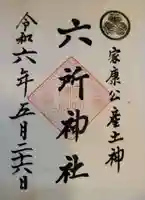 家康公産土神
六所神社
令和六年五月二六日